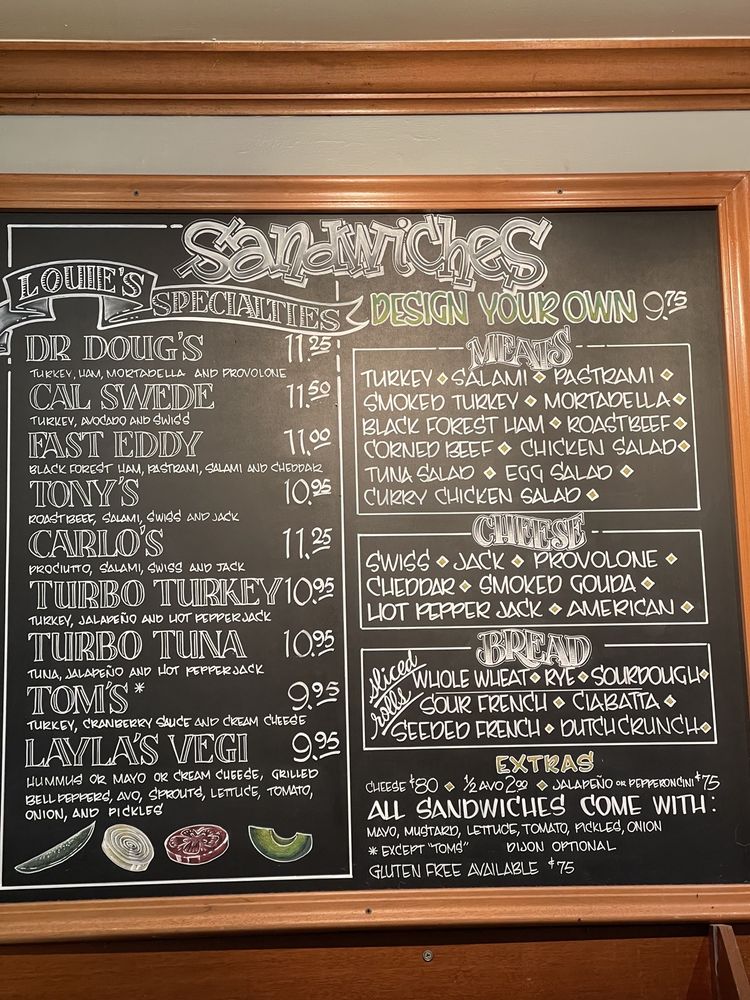 Sandwiches
LOUIE'S SPECIALTIES
DR DOUG'S 11.25
TURKEY, HAM, MORTADELLA AND PROVOLONE
CAL SWEDE 11.50
TURKEY, AVOCADO AND SWISS
FAST EDDY 11.00
BLACK FOREST HAM, PASTRAMI, SALAMI AND CHEDDAR
TONY'S 10.95
ROAST BEEF, SALAMI, SWISS AND JACK
CARLO'S 11.25
PROCIUTTO, SALAMI, SWISS AND JACK
TURBO TURKEY 10.95
TURKEY, JALAPEÑO AND HOT PEPPER JACK
TURBO TUNA 10.95
TUNA, JALAPEÑO AND HOT PEPPER JACK
TOM'S * 9.95
TURKEY, CRANBERRY SAUCE AND CREAM CHEESE
LAYLA'S VEGI 9.95
HUMMUS OR MAYO OR CREAM CHEESE, GRILLED
BELL PEPPERS, AVO, SPROUTS, LETTUCE, TOMATO,
ONION, AND PICKLES
DESIGN YOUR OWN 9.75
MEATS
TURKEY ◆ SALAMI ◆ PASTRAMI ◆
SMOKED TURKEY ◆ MORTADELLA ◆
BLACK FOREST HAM ◆ ROAST BEEF ◆
CORNED BEEF ◆ CHICKEN SALAD ◆
TUNA SALAD ◆ EGG SALAD ◆
CURRY CHICKEN SALAD ◆
CHEESE
SWISS ◆ JACK ◆ PROVOLONE ◆
CHEDDAR ◆ SMOKED GOUDA ◆
HOT PEPPER JACK ◆ AMERICAN ◆
BREAD
sliced WHOLE WHEAT ◆ RYE ◆ SOURDOUGH ◆
rolls SOUR FRENCH ◆ CIABATTA ◆
SEEDED FRENCH ◆ DUTCH CRUNCH ◆
EXTRAS
CHEESE $80 ◆ 1/2 AVO 2.00 ◆ JALAPEÑO OR PEPPERONCINI $75
ALL SANDWICHES COME WITH:
MAYO, MUSTARD, LETTUCE, TOMATO, PICKLES, ONION
* EXCEPT "TOMS" DIJON OPTIONAL
GLUTEN FREE AVAILABLE $75